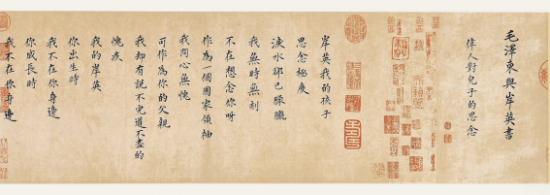 毛澤東與岸英書
偉人對兒子的思念
岸英我的孩子
思念極度
淚水卻已朦朧
我無時無刻
不在想念你呀
作為一個國家領袖
我問心無愧
可作為你的父親
我卻有說不完道不盡的
愧疚
我的岸英
你出生時
我不在你身邊
你成長時
我不在你身邊